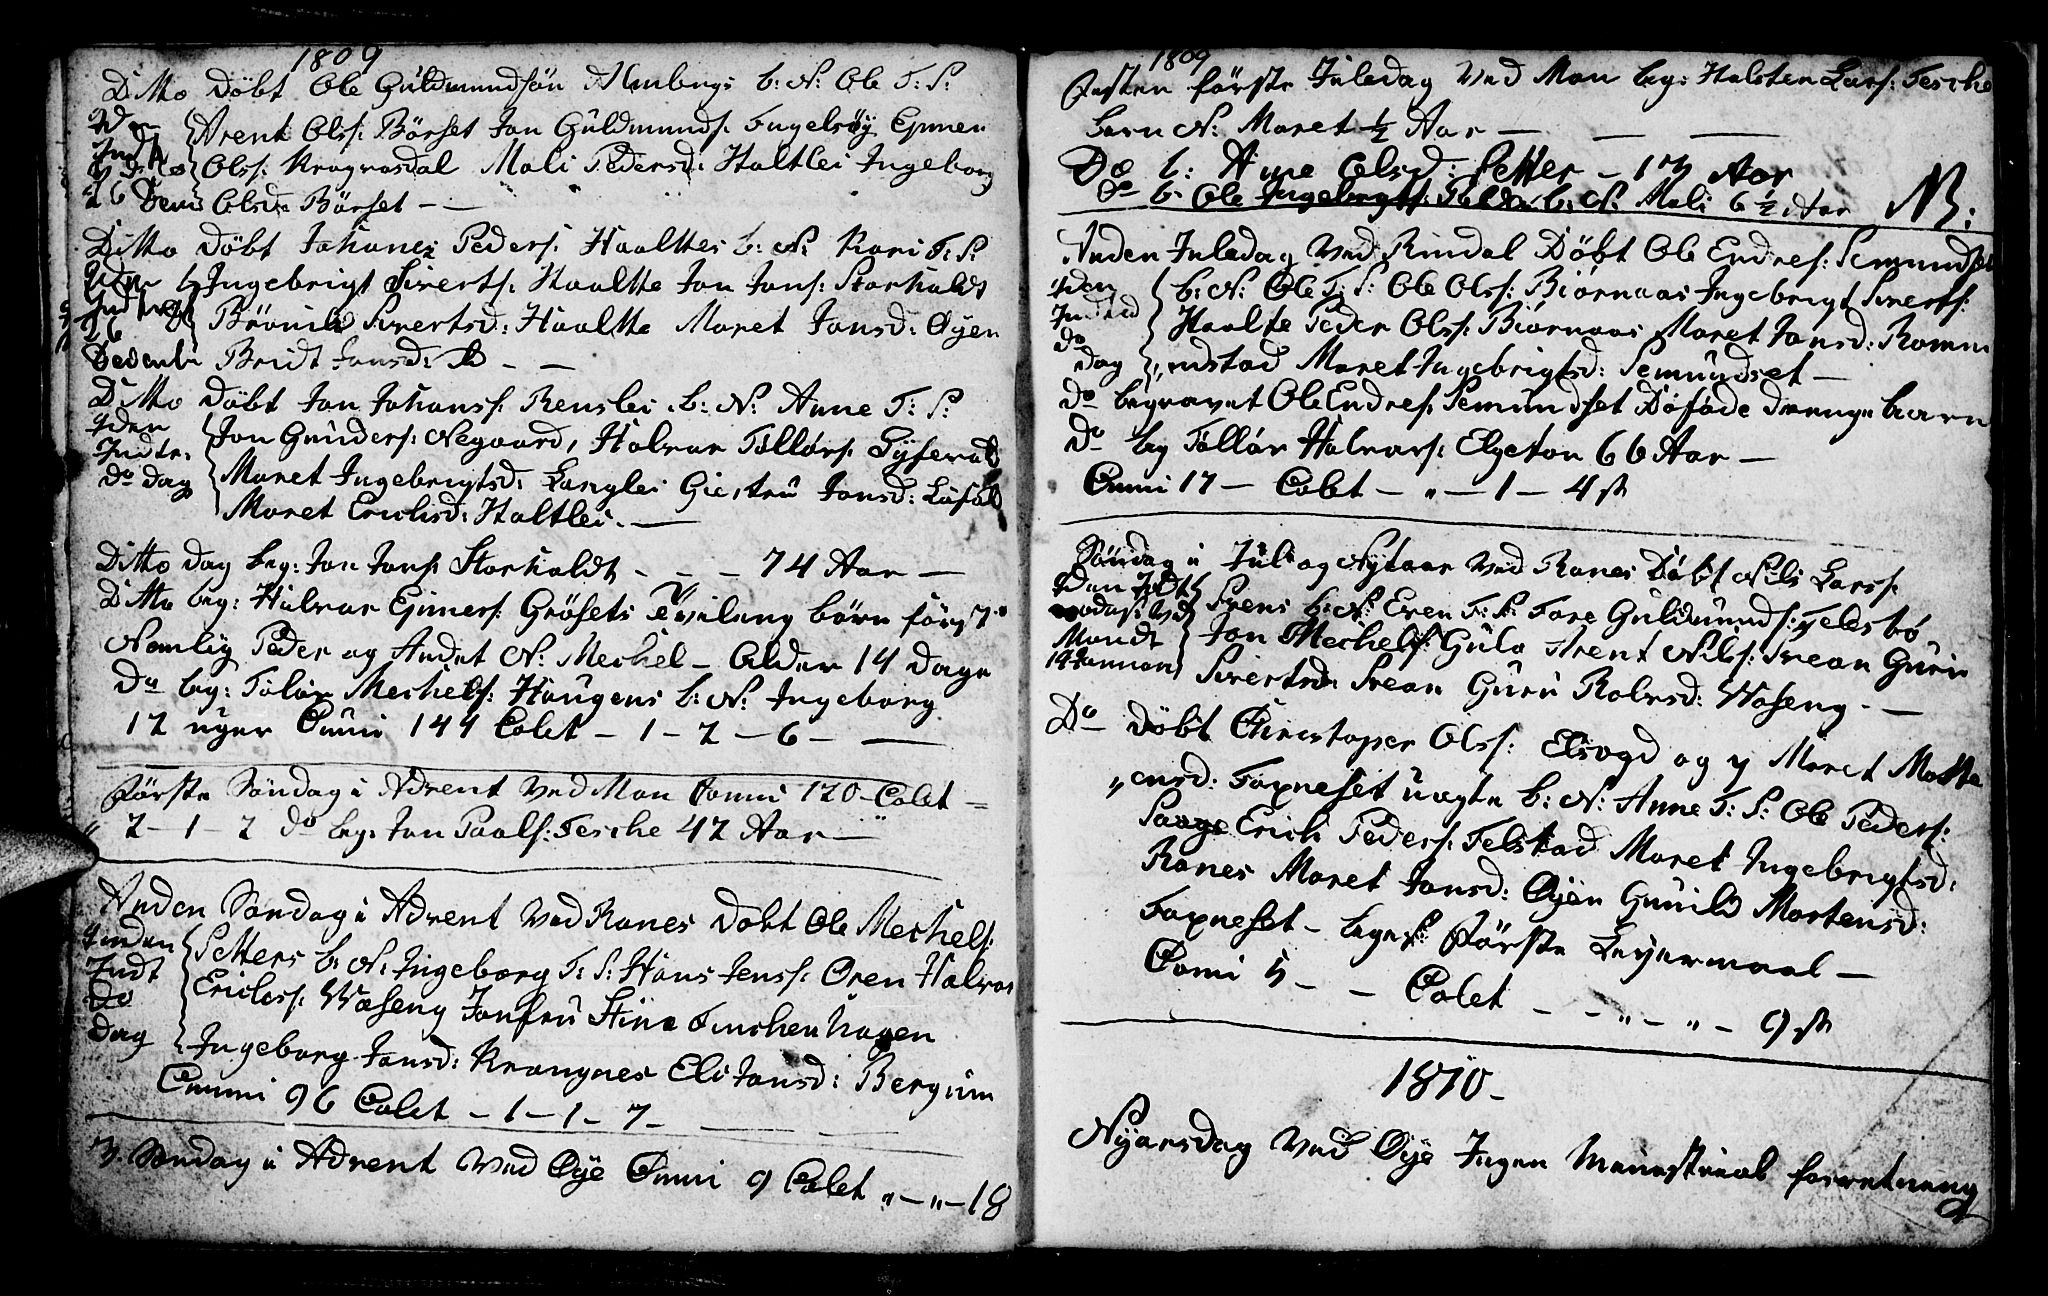 1809
Ditto Döbt Ole Guldmundsön Almbergs b: N: Ole F: S:
Arent Ols: Börset Jon Guldmunds: Engelsøy Ejner
Ols: Kragnasdal Mali Pedersd: Haltlei Ingeborg
26 Olsd: Börset - -
Ditto Döbt Johanes Peders: Haaltes b: N: Kari F: S:
Ingebrigt Siverts: Haalte Jon Jons: Storholdt
26 Brönild Sivertsd: Haalte Maret Jonsd: Øyen
Bridt Jonsd: D - -
Ditto Döbt Jon Johans: Renslei b: N: Anne F: S:
Jon Gunders: Negaard, Halvar Tollörs:
Indte: Maret Ingebrigtsd: Langlei Giertru Jonsd:
do dag Maret Erichsd: Haltlei. -
Ditto dag beg: Jon Jons: Storholdt - - - 74 Aar -
Ditto beg: Halvar Ejners: Grösets Tvileng börn
Nemlig Peder og Andet N: Mechel - Alder 14 dage
Do beg: Tolör Mechels: Haugens b: N: Ingeborg
12 uger Comi 144 Colet - 1 - 2 - 6 - -
Förste Söndag i Advent Ved Moe Comi 120 - Colet -
2 - 1 - 2 do beg: Jon Paals: Fesche 42 Aar -
Anden Söndag i Advent Ved Ranes Döbt Ole Mechels:
Setters b: N: Ingeborg F: S: Hans Jenss: Oren Halvor
Indt Erichss: Waseng Jonfru Stine Tuschenhagen
Do
Dag Ingeborg Jonsd: Krangnes Eli Jonsd: Bergum
Commi 96 Colet - 1 - 1 - 7 -
3. Söndag i Advent Ved Øye Comi 9 Colet " - " - 18
1809
Festen förste Juledag Ved Moe beg: Halsten Lars: Fesche
barn N: Maret 1/2 Aar - - -
Do b: Anne Olsd: Setter - 13 Aar
Do b: Ole Ingebrigts: b: N: Mali 6 1/2 Aar NB:
Anden Juledag Ved Rindal Döbt Ole Endres: Semundset
b: N: Ole F: S: Ole Olss: Biörnaas Ingebrigt Siverts:
Haalte Peder Olss: Biörnaas Maret Jonsd: Romm
do
dag undstad Maret Ingebrigtsd: Semundset -
do begravet Ole Endres: Semundset Döföde drenge baarn
Do beg Tollör Halvars: Elgeton 66 Aar -
Comi 17 - Colet - " - 1 - 4 st
Söndag i Jul og Nytaar Ved Ranes Döbt Nils Larss:
Svens b: N: Even F: S: Tore Guldmunds:
Jon Mechels: Gula Arent Nils: Svean Guru
Sivertsd: Svean Guru Rolvsd: Waseng - -
Do Döbt Christopher Olss: Elsvogd og Maret Morte
" ensd: Foxneset uægte b: N: Anne F: S: Ole Peders:
Saage Erich Peders: Felstad Maret Ingebrigtsd:
Ranes Maret Jonsd: Øyen Gunild Mortensd:
Foxneset - beges: Förste Leyermaal -
Comi 5 - - Colet - - " - " - 9 st
1810 -
Nyarsdag Ved Øye Ingen Menesterial forretning